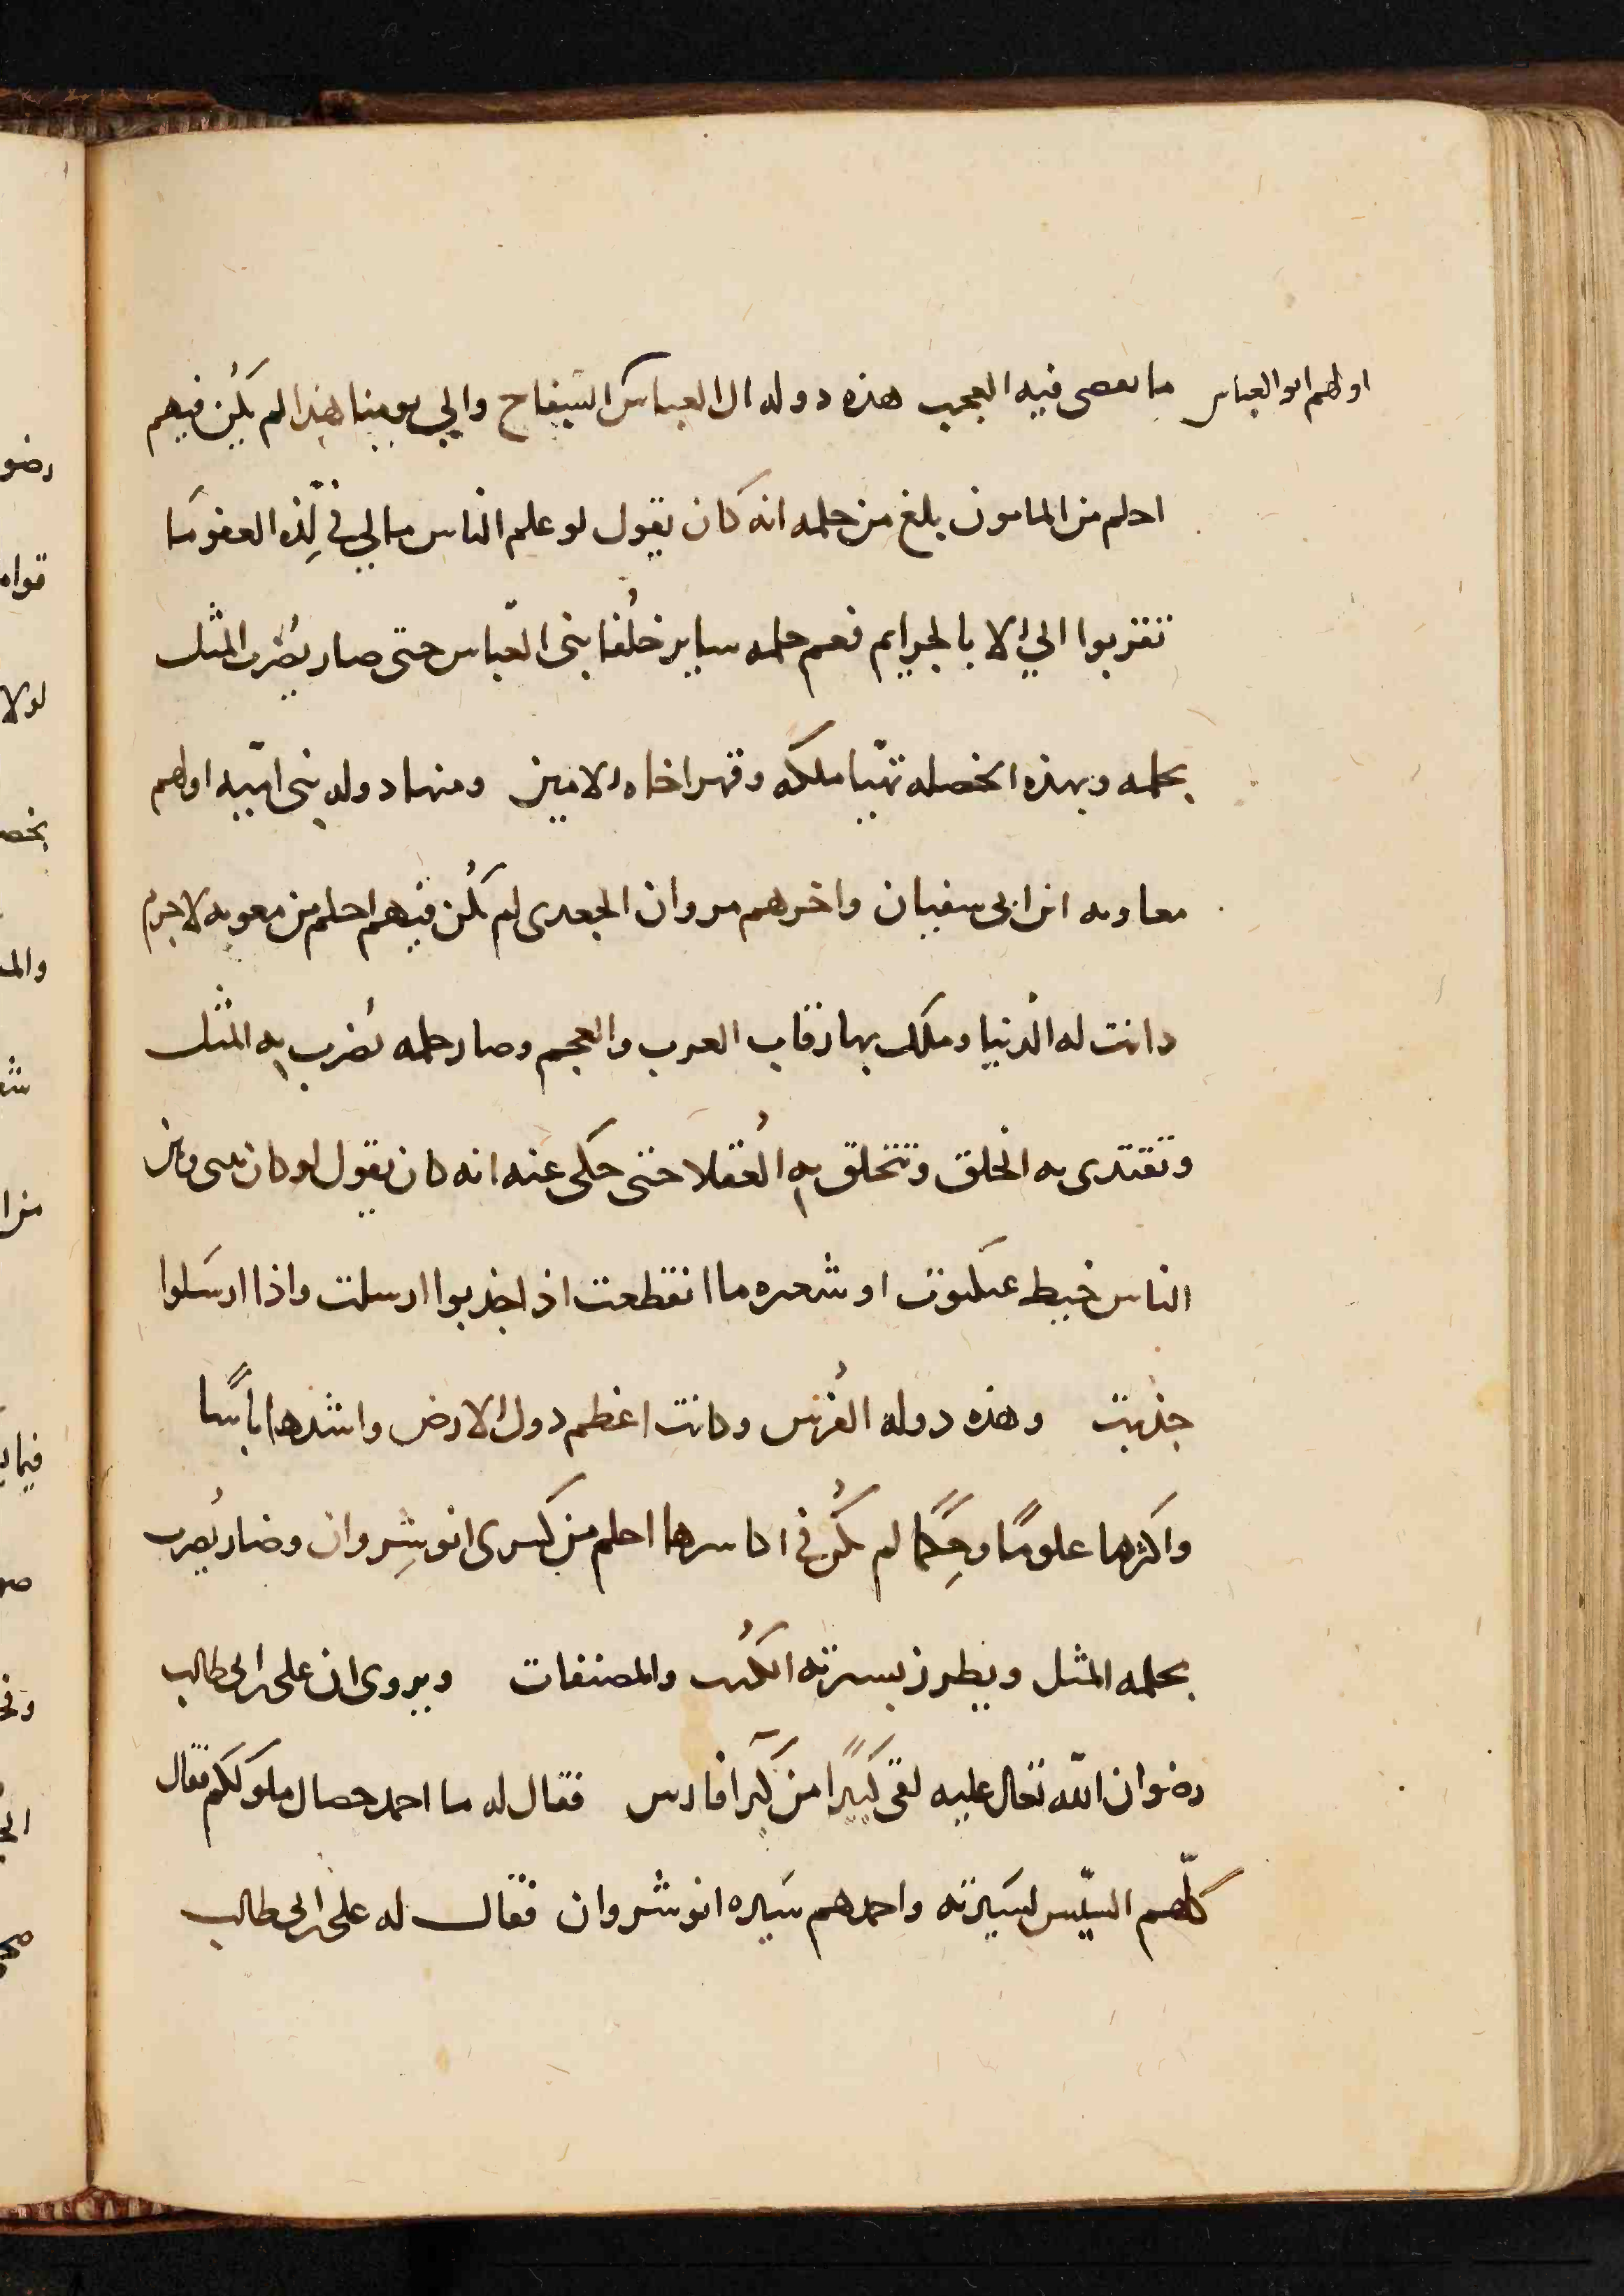 اولهم ابو العباس
ما يقضى فيه العجب هذه دوله ال العباس السفاح والي يومنا هذا لم يكن فيهم
احلم من المامون بلغ من حلمه انه كان يقول لو علم الناس ما لي في لذه العفو ما
تقربوا الي الا بالجرايم فعم حلمه ساير خلفا بنى العباس حتى صار يضرب المثل
بحلمه وبهذه الخصله تهيا ملكه وقهر اخاه الامين ومنها دوله بنى اميه اولهم
معاويه ابن ابى سفيان واخرهم مروان الجعدى لم يكن فيهم احلم من معويه لا جرم
دانت له الدنيا وملك بها رقاب العرب والعجم وصار حلمه يضرب به المثل
وتقتدى به الخلق وتتخلق به العقلا حتى حكى عنه انه كان يقول لو كان بينى وبين
الناس خيط عنكبوت او شعره ما انقطعت اذا جذبوا ارسلت واذا ارسلوا
جذبت وهذه دوله الفرس وكانت اعظم دول الارض واشدها باسًا
واكثرها علومًا وحِكَمًا لم يكن في اكاسرها احلم من كسرى انوشِروان وصار يُضرب
بحلمه المثل ويطرز بسيرته الكُتب والمصنفات ويروى ان على بن ابى طالب
رضوان الله تعالى عليه لقى كبيرًا من كبرآ فارس فقال له ما احمد خصال ملوككم فقال
كلّهم السيّس لسيرته واحمدهم سيره انوشروان فقال له على بن ابى طالب